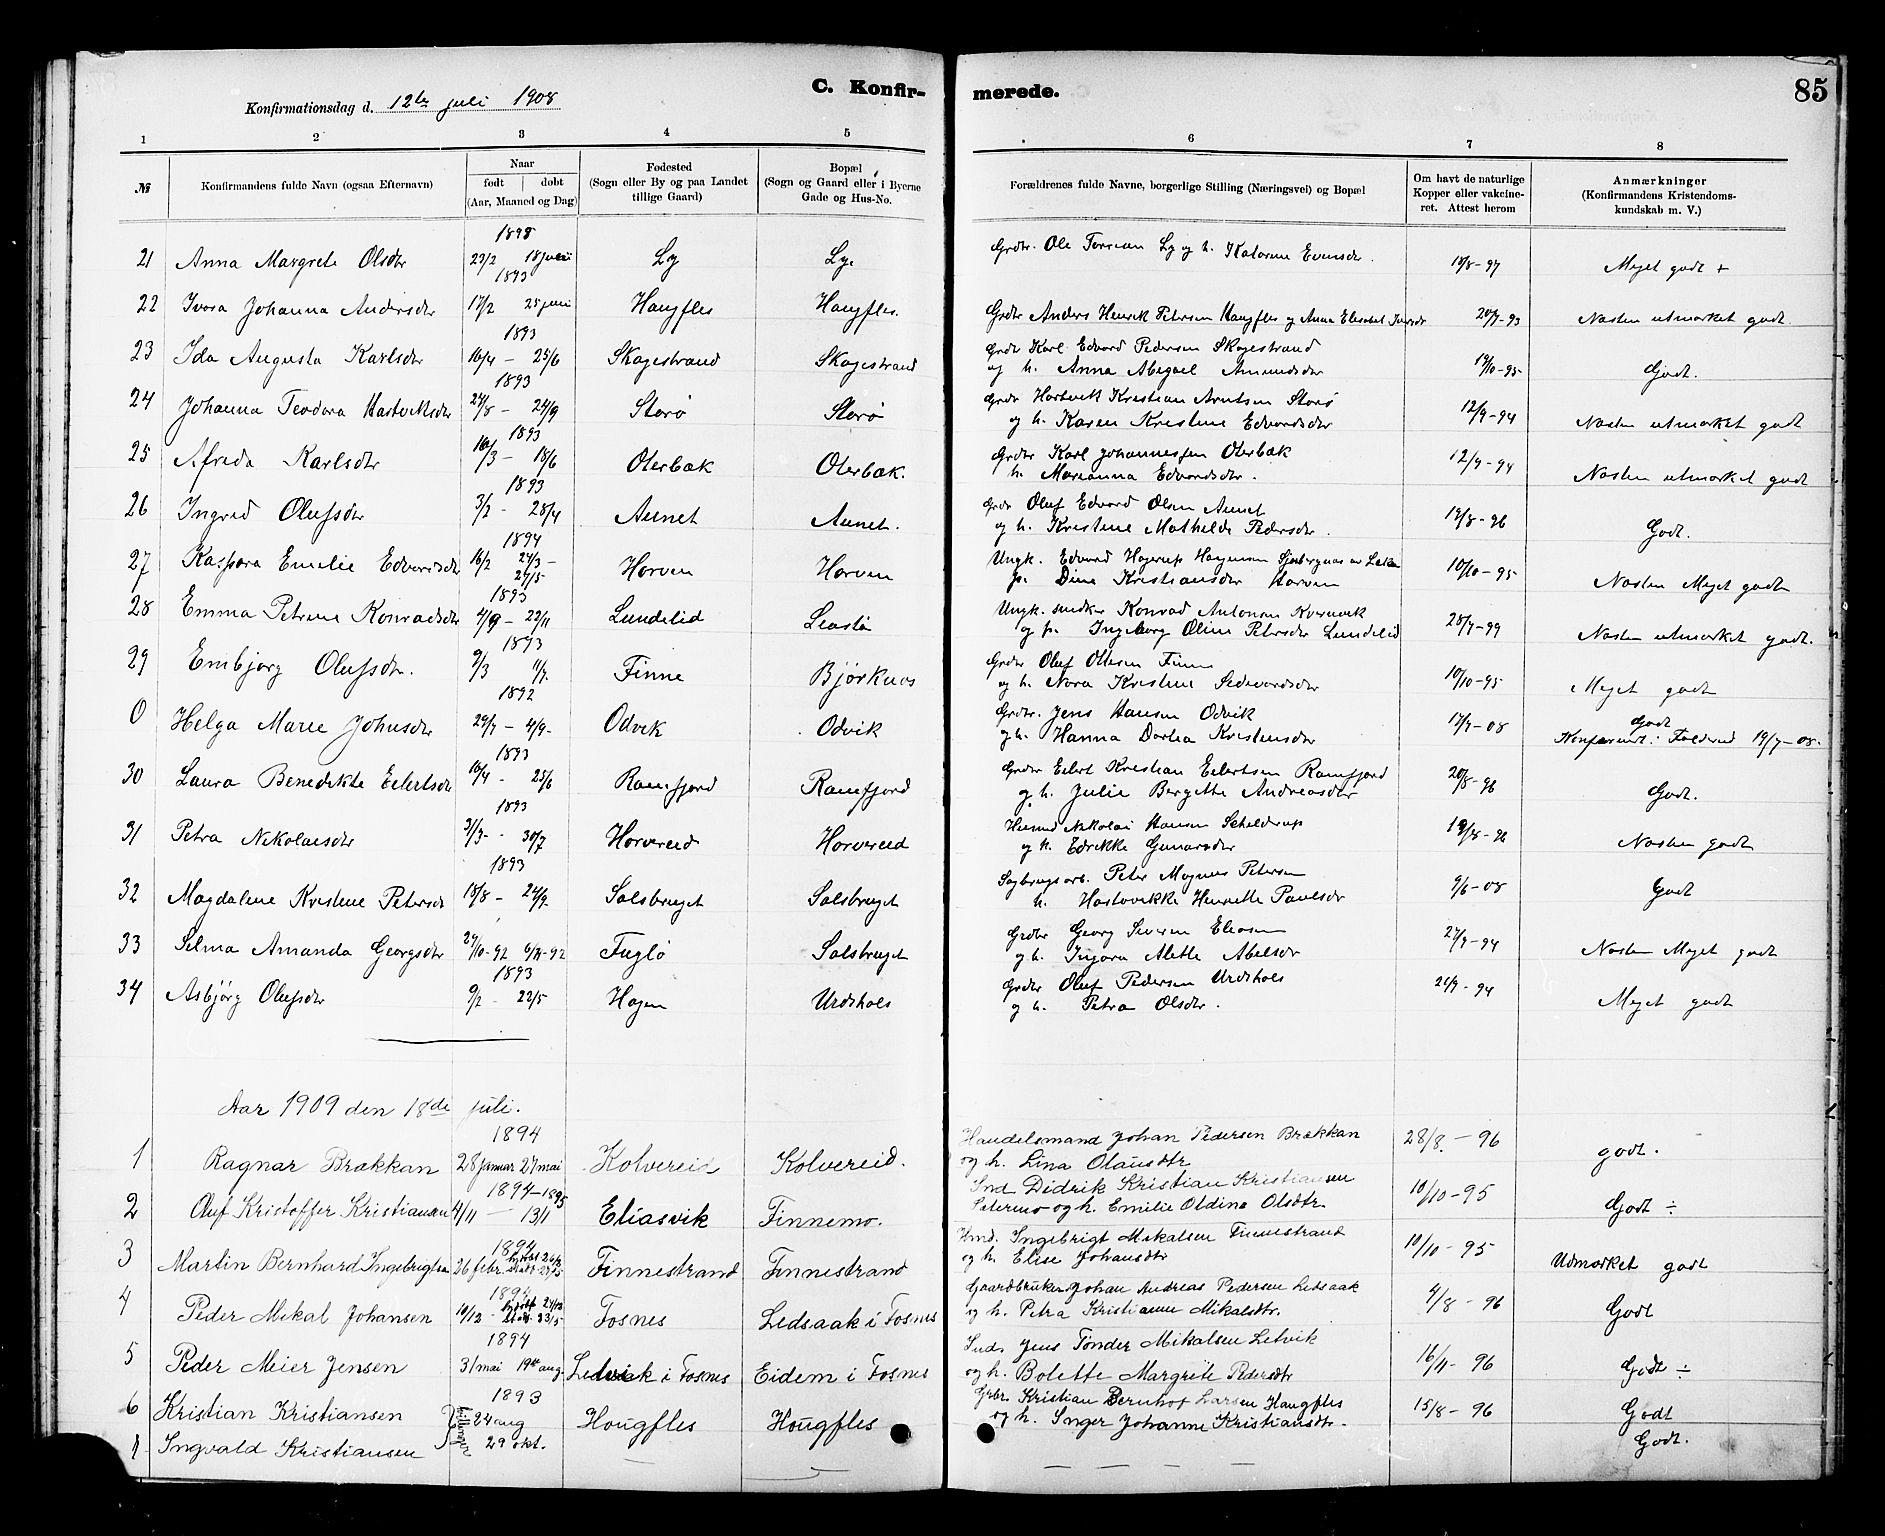 C. Konfir-
merede.
85
Konfirmationsdag d. 12te juli 1908
1 2 3 4 5 6 7 8
№
Konfirmandens fulde Navn (ogsaa Efternavn)
Naar
født døbt
(Aar, Maaned og Dag)
Fødested
(Sogn eller By og paa Landet
tillige Gaard)
Bopæl
(Sogn og Gaard eller i Byerne
Gade og Hus-No.
Forældrenes fulde Navne, borgerlige Stilling (Næringsvei) og Bopæl
Om havt de naturlige
Kopper eller vakcine-
ret. Attest herom
Anmærkninger
(Konfirmandens Kristendoms-
kundskab m. V.)
1893
21 Anna Margrete Olsdtr 23/2 18 juni Ly Ly. Grdtr. Ole Ly og h. Evensdtr. 18/8-97 Meget godt +
1893
22 Ivora Johanna Andersdtr 17/2 25 juni Haugfles Haugfles. Grdtr Anders Henrik Petersen Haugfles og Anna Elisabet 20/9-93 Næsten utmærket godt.
1893
23 Ida Augusta Karlsdtr 16/4 - 25/6 Skagestrand Skagestrand Grdtr Karl Edvard Pedersen Skagestrand
og h. Anna Abigael Amundsdtr 19/10-95 Godt.
1893
24 Johanna Teodora Hartviksdtr 24/8 - 24/9 Storø Storø Grdtr Hartvik Kristian Arntsen Storø
og h. Karen Kristine Edvardsdtr 12/9-94 Næsten utmærket godt
1893
25 Alfrida Karlsdtr 16/3 - 18/6 Oterbæk Oterbæk. Grdtr Karl Johannessen Oterbæk
h. Marianna Edvardsdtr. 12/9-94 Næsten utmærket godt
1893
26 Ingrid Olufsdtr 3/2 - 28/4 Aunet Aunet. Grdtr Oluf Edvard Olsen Aunet
og h. Kristine Mathilde Pedersdtr. 19/8-96 Godt.
1894
27 Kaspara Emelie Edvardsdtr 16/2 24/3 - 27/5 Horven Horven Ungk. Edvard Hagerup
p. Dina Kristiansdtr Horven 10/10-95 Næsten Meget godt
1893
28 Emma Petrine Konradsdtr 4/9 - 22/11 Lundelid Ungk. snedker Konrad Antonsen
og p. Ingeborg Oline Petersdtr Lundelid 28/9-99 Næsten utmærket godt.
1893
29 Embjørg Olufsdtr. 9/3 11/7. Finne Bjørknes Grdtr Oluf Ottesen Finne
og h. Nora Kristine 10/10-95 Meget godt
1892
0 Helga Marie Johnsdtr 29/7 - 4/9- Odvik Odvik Grdtr. Jens Hansen Odvik
og h. Hanna Dortea Kristensdtr 17/7-08 Godt
Konfirmert i Foldereid 19/7-08.
1893
30 Laura Benedikte Eilertsdtr 16/4 - 25/6 Ramfjord Ramfjord Grdtr Eilert Kristian Eilertsen Ramfjord
og h. Julie Bergitte Andreasdtr 20/8-96 Godt.
1893
31 Petra Nikolaisdtr 31/3 - 30/7 Horvereid Horvereid Husmd Nikolai Hansen Schelderup
og h. Edrikke Gunarsdtr 19/8-96 Næsten godt
1893
32 Magdalene Kristine Petersd 18/8 - 24/9 Salsbruget Salsbruget Sagbrugsarb. Peter Magnus Petersen
h. Hartvikke Henrette Paulsdtr 9/6-08 Godt
33 Selma Amanda Georgsdtr 29/10-92 6/11-92 Fuglø Salsbruget Grdtr Georg Severin Eliasen
og h. Ingora Aletta Abelsdtr 27/9-94 Næsten Meget godt
1893
34 Asbjørg Olufsdtr 9/2 - 22/5 Hagen Urdshals Grdtr Oluf Pedersen Urdshals
og h. Petra Olsdtr. 21/9-94 Meget godt
Aar 1909 den 18de juli.
1894
1 Ragnar Brækkan 28 januar 27 mai Kolvereid Kolvereid. Handelsmand Johan Pedersen Brækkan
og h. Lina Olausdtr 28/8. - 96 godt.
1894-1895
2 Oluf Kristoffer Kristiansen 4/11 - 13/1 Eliasvik Finnemo. Ind. Didrik Kristian Kristiansen
og h. Emilie Oldina Olsdtr. 10/10-95 Godt ÷
1894
3 Martin Bernhard Ingebrigtsen 26 febr. Finnestrand Finnestrand Hmd. Ingebrigt Mikalsen Finnestrand
og h. Elise Johansdtr 10/10-95 Udmærket godt
1894
4 Peder Mikal Johansen 10/12 - Fosnes Ledsaak i Fosnes Gaardbruker Johan Andreas Pedersen Ledsaak
og h. Petra Kristianne Mikalsdtr. 4/8-96 Godt
1894
5 Peder Meier Jensen 31 mai 19de aug. i Fosnes Eidem i Fosnes Inds. Jens Tønder Mikalsen Letvik
og h. Bolette Margrete Pedersdtr 16/11-96 Godt ÷
1893
6 Kristian Kristiansen tvillinger 24 aug Hougfles Hougfles Grbr. Kristian Bernhof Larsen Haugfles
og h. Inger Johanne Kristiansdtr. 15/8-96 Godt
Ingvald Kristiansen 29 okt. Godt.